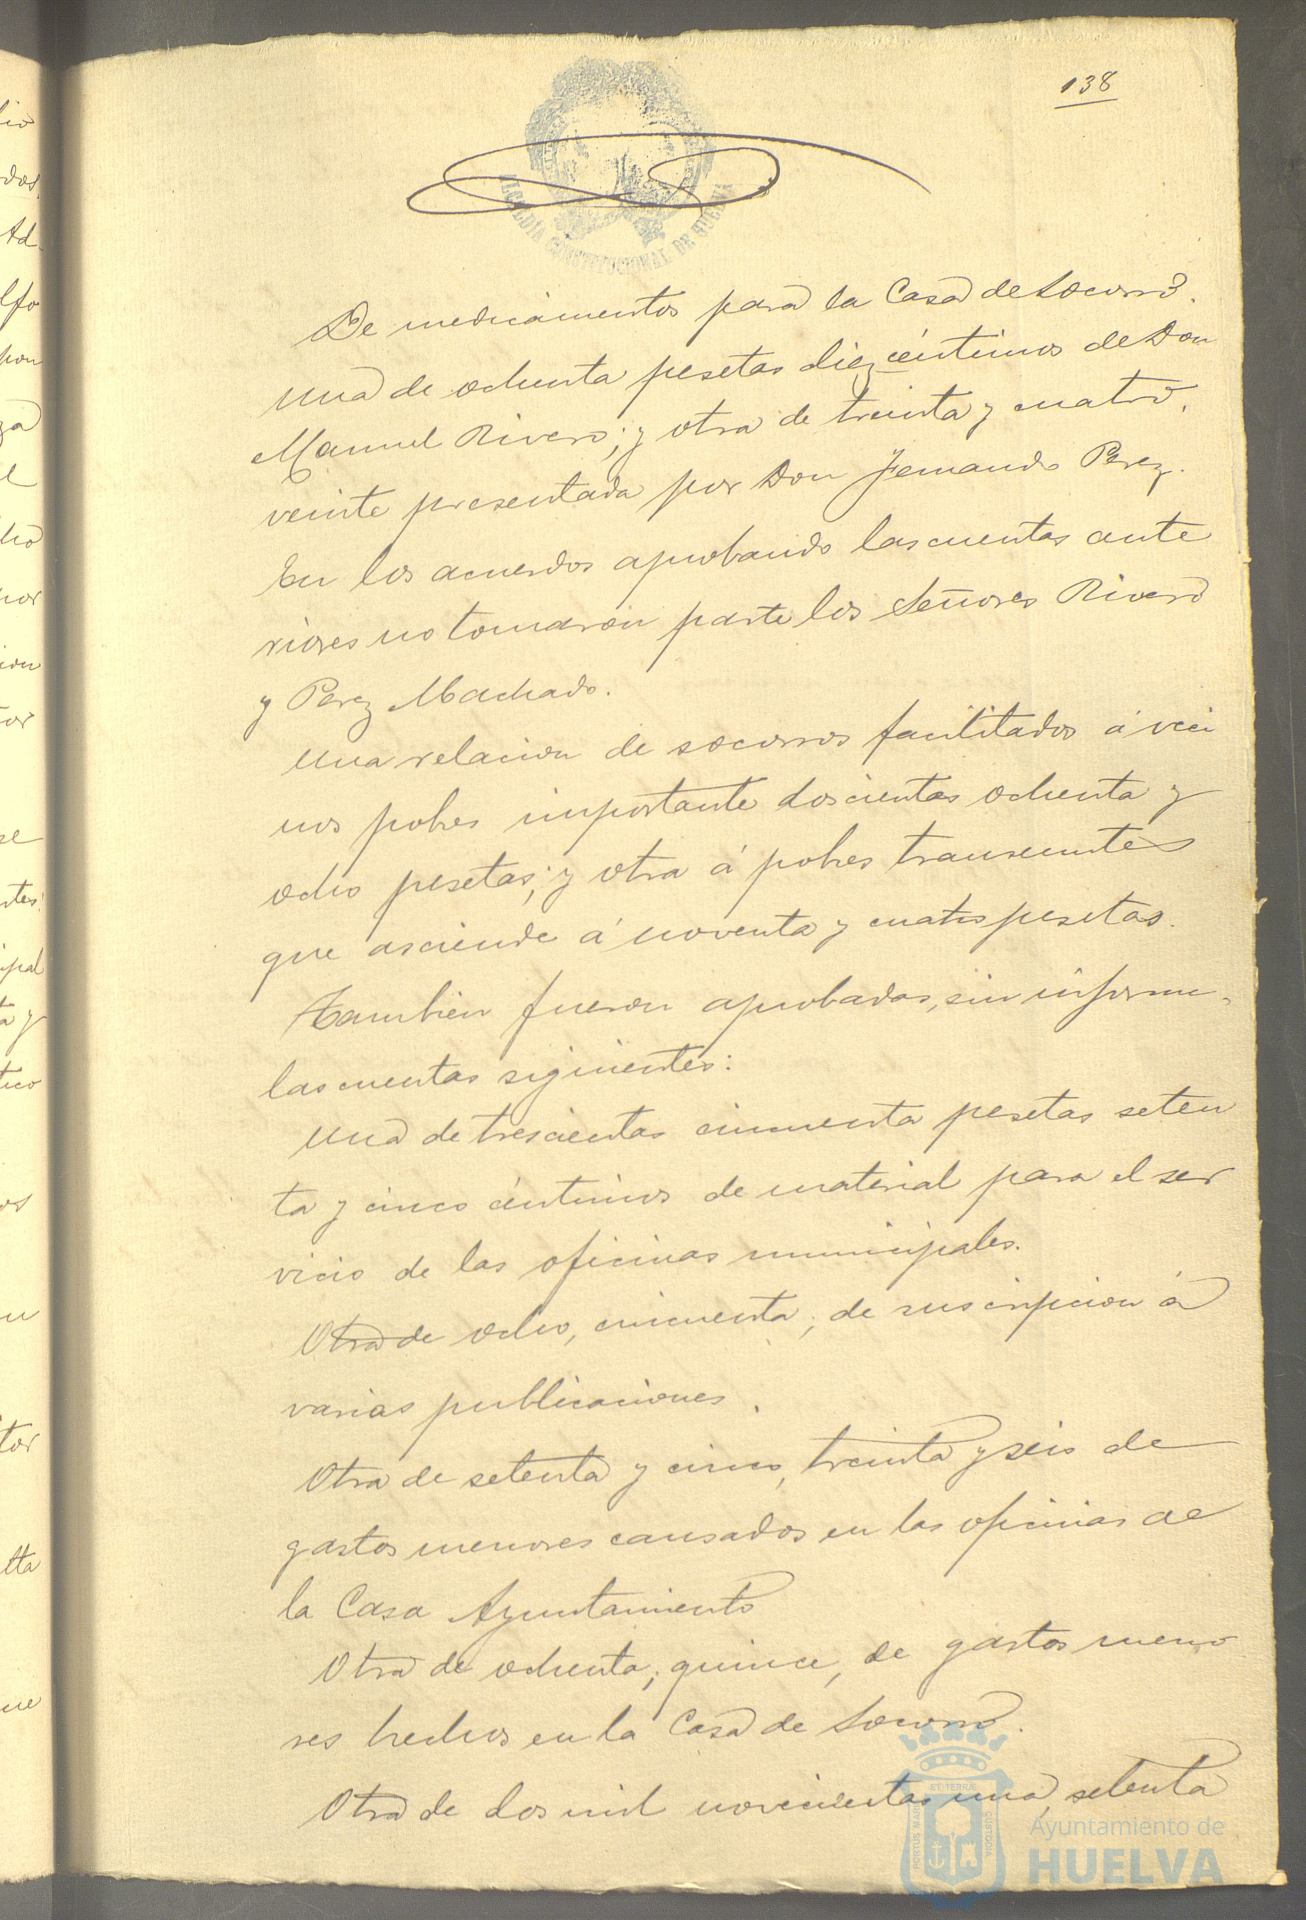 138
ALCALDÍA CONSTITUCIONAL DE HUELVA
De medicamentos para la Casa de Socorro.
una de ochenta pesetas diez céntimos de Don
Manuel Rivero; y otra de treinta y cuatro,
veinte presentada por Don Fernando Perez.
En los acuerdos aprobando las cuentas ante
riores no tomaron parte los Señores Rivero
y Perez Machado.
Una relacion de socorros facilitados á veci
nos pobres importante doscientas ochenta y
ocho pesetas; y otra á pobres transeuntes
que asciende á noventa y cuatro pesetas.
Tambien fueron aprobadas, sin informe,
las cuentas siguientes:
Una de trescientas cincuenta pesetas seten
ta y cinco céntimos de material para el ser
vicio de las oficinas municipales.
Otra de ocho, cincuenta, de suscripcion á
varias publicaciones.
Otra de setenta y cinco, treinta y seis de
gastos menores causados en las oficinas de
la Casa Ayuntamiento
Otra de ochenta, quince, de gastos meno
res hechos en la Casa de Socorro.
Otra de dos mil novecientas una, setenta
PORTUS MARIS ET TERRÆ CUSTODIA
Ayuntamiento de
HUELVA